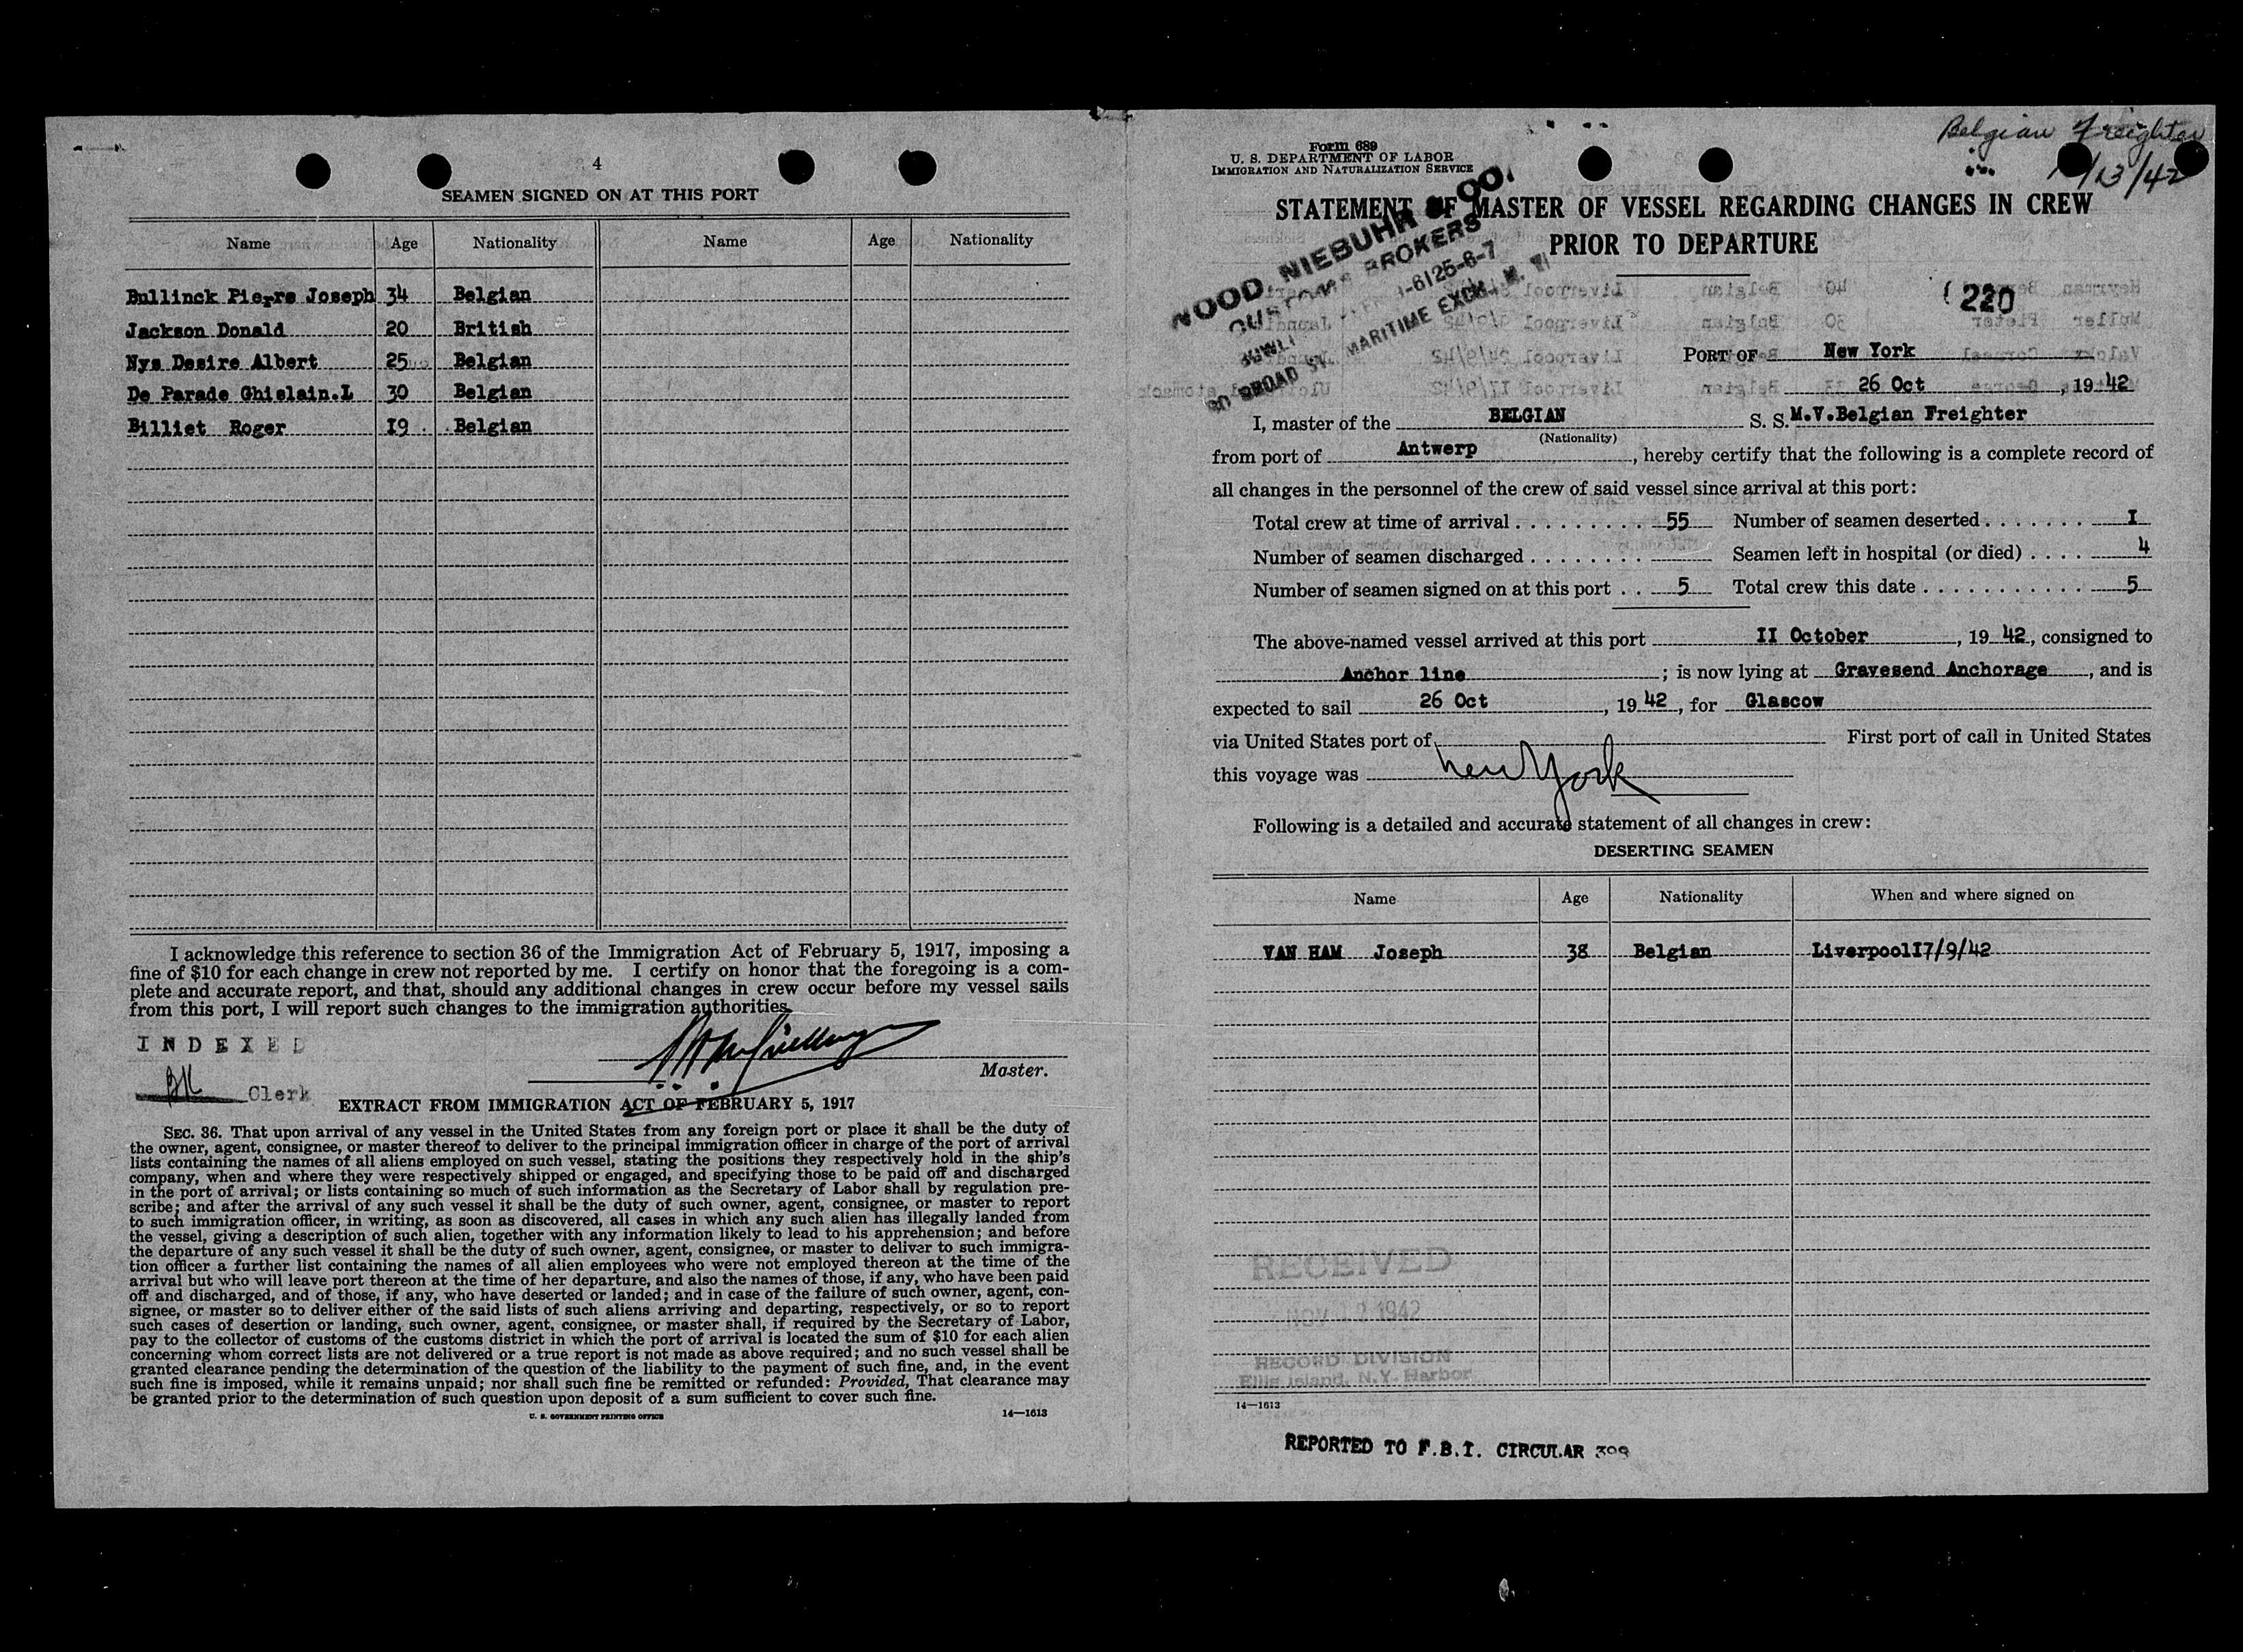 4
SEAMEN SIGNED ON AT THIS PORT
Name Age Nationality Name Age Nationality
Bullinck Pierre Joseph 34 Belgian
Jackson Donald 20 British
Nys Desire Albert 25 Belgian
De Parade Ghislain.L 30 Belgian
Billiet Roger I9 Belgian
I acknowledge this reference to section 36 of the Immigration Act of February 5, 1917, imposing a
fine of $10 for each change in crew not reported by me. I certify on honor that the foregoing is a com-
plete and accurate report, and that, should any additional changes in crew occur before my vessel sails
from this port, I will report such changes to the immigration authorities.
INDEXED
Master.
Clerk
EXTRACT FROM IMMIGRATION ACT OF FEBRUARY 5, 1917
SEC. 36. That upon arrival of any vessel in the United States from any foreign port or place it shall be the duty of
the owner, agent, consignee, or master thereof to deliver to the principal immigration officer in charge of the port of arrival
lists containing the names of all aliens employed on such vessel, stating the positions they respectively hold in the ship's
company, when and where they were respectively shipped or engaged, and specifying those to be paid off and discharged
in the port of arrival; or lists containing so much of such information as the Secretary of Labor shall by regulation pre-
scribe; and after the arrival of any such vessel it shall be the duty of such owner, agent, consignee, or master to report
to such immigration officer, in writing, as soon as discovered, all cases in which any such alien has illegally landed from
the vessel, giving a description of such alien, together with any information likely to lead to his apprehension; and before
the departure of any such vessel it shall be the duty of such owner, agent, consignee, or master to deliver to such immigra-
tion officer a further list containing the names of all alien employees who were not employed thereon at the time of the
arrival but who will leave port thereon at the time of her departure, and also the names of those, if any, who have been paid
off and discharged, and of those, if any, who have deserted or landed; and in case of the failure of such owner, agent, con-
signee, or master so to deliver either of the said lists of such aliens arriving and departing, respectively, or so to report
such cases of desertion or landing, such owner, agent, consignee, or master shall, if required by the Secretary of Labor,
pay to the collector of customs of the customs district in which the port of arrival is located the sum of $10 for each alien
concerning whom correct lists are not delivered or a true report is not made as above required; and no such vessel shall be
granted clearance pending the determination of the question of the liability to the payment of such fine, and, in the event
such fine is imposed, while it remains unpaid; nor shall such fine be remitted or refunded: Provided, That clearance may
be granted prior to the determination of such question upon deposit of a sum sufficient to cover such fine.
U. S. GOVERNMENT PRINTING OFFICE 14—1613
Belgian Freighter
/13/42
Form 689
U. S. DEPARTMENT OF LABOR
IMMIGRATION AND NATURALIZATION SERVICE
STATEMENT OF MASTER OF VESSEL REGARDING CHANGES IN CREW
PRIOR TO DEPARTURE
NIEBUHR & CO.
CUSTOMS BROKERS
-6125-6-7
BROAD ST. MARITIME EXCH.
220
PORT OF New York
26 Oct, 19 42
I, master of the BELGIAN S. S. M.V.Belgian Freighter
(Nationality)
from port of Antwerp, hereby certify that the following is a complete record of
all changes in the personnel of the crew of said vessel since arrival at this port:
Total crew at time of arrival . . . . . . . . . 55 Number of seamen deserted . . . . . . . I
Number of seamen discharged . . . . . . . . Seamen left in hospital (or died) . . . . 4
Number of seamen signed on at this port . . 5 Total crew this date . . . . . . . . . . . 5
The above-named vessel arrived at this port II October, 19 42, consigned to
Anchor line; is now lying at Gravesend Anchorage, and is
expected to sail 26 Oct, 19 42, for Glascow
via United States port of First port of call in United States
this voyage was New York
Following is a detailed and accurate statement of all changes in crew:
DESERTING SEAMEN
Name Age Nationality When and where signed on
VAN HAM Joseph 38 Belgian LiverpoolI7/9/42
RECEIVED
NOV 12 1942
RECORD DIVISION
Ellis Island, N.Y. Harbor
14—1613
REPORTED TO F.B.I. CIRCULAR